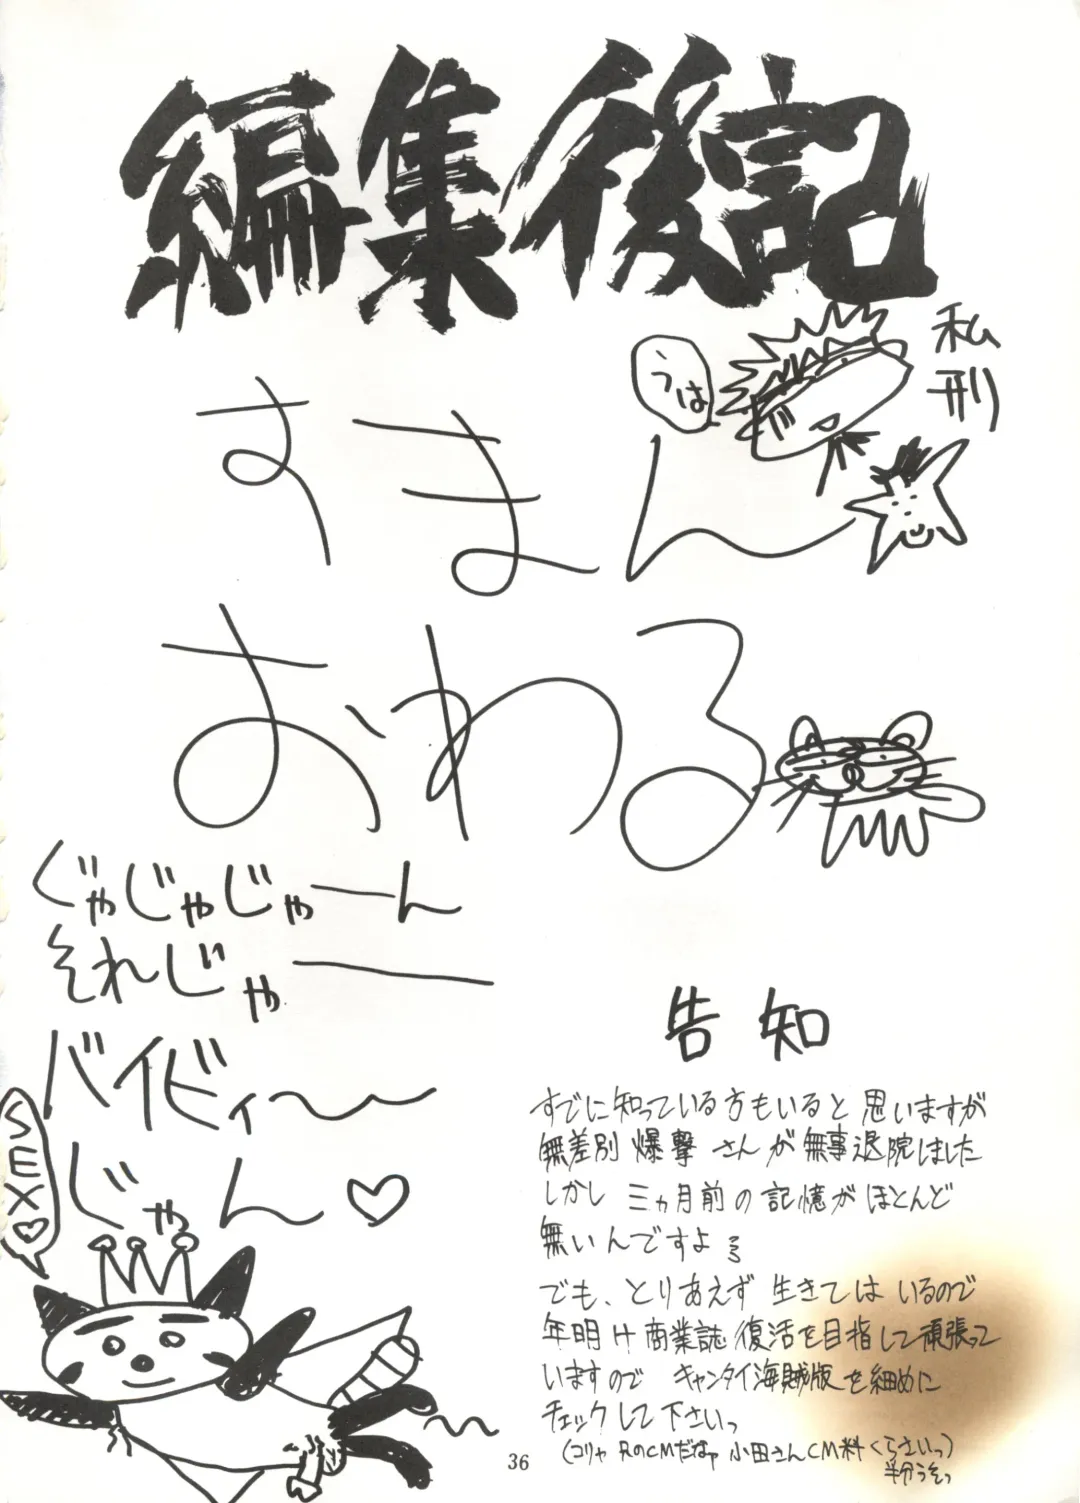 編集後記
私刑
うは
すまん
おわる
ぐゃじゃじゃーん
それじゃー
バイビィ〜〜
じゃん♡
SEX♡
告知
すでに知っている方もいると思いますが
無差別爆撃さんが無事退院しました
しかし三ヵ月前の記憶がほとんど
無いんですよ
でも、とりあえず生きてはいるので
年明け商業誌復活を目指して頑張って
いますので キャンタイ海賊版を細めに
チェックして下さいっ
(コリャRのCMだなァ 小田さんCM料くらさいっ)
半分うそっ
36